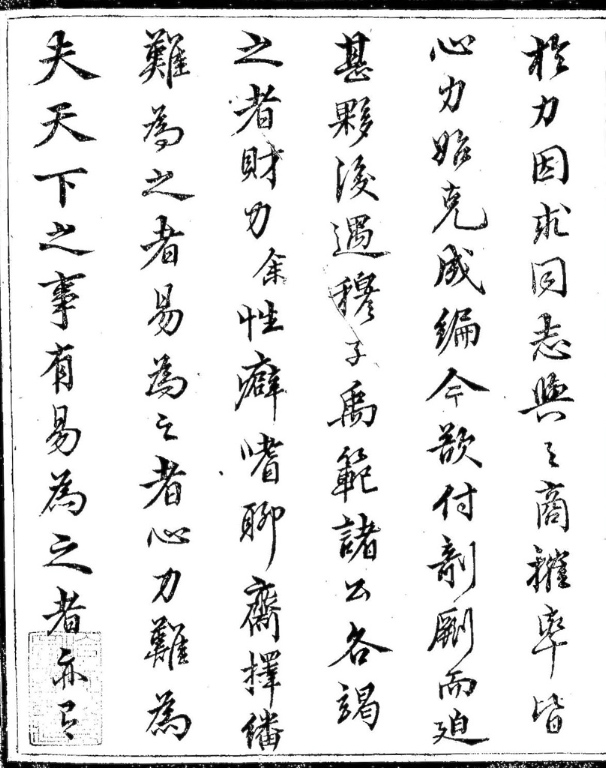 夫天下之事有易為之者亦有
難為之者易為之者心力難為
之者財力余性癖嗜聊齋擇繙
甚夥後遇穆子禹範諸公各竭
心力始克成編今欲付剞劂而迫
於力因求同志與之商榷率皆